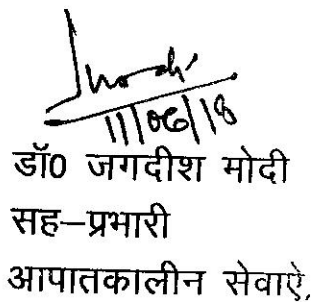 11/06/18
डॉ0 जगदीश मोदी
सह–प्रभारी
आपातकालीन सेवाऐं,